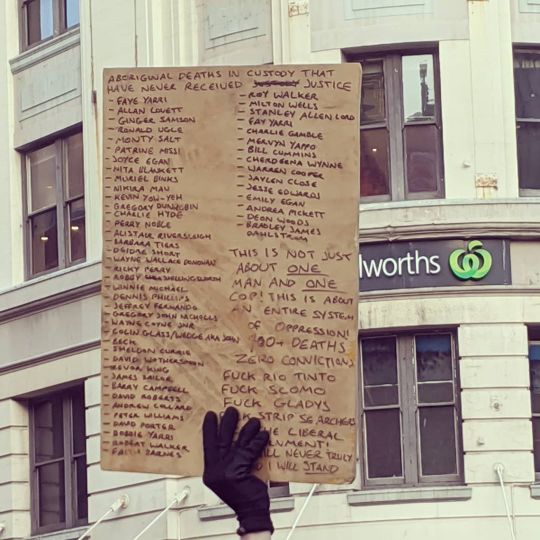 ABORIGINAL DEATHS IN CUSTODY THAT
HAVE NEVER RECEIVED JUSTICE
- FAYE YARRI
- ALLAN LOVETT
- GINGER SAMSON
- RONALD UGLE
- MONTY SALT
- PATRINE MISI
- JOYCE EGAN
- NITA BLANKETT
- MURIEL BINKS
- NIKIRA MAN
- KEVIN YOW-YEH
- GREGORY DUNROBIN
- CHARLIE HYDE
- PERRY NOBLE
- ALISTAIR RIVERSLEIGH
- BARBARA TIERS
- DEIDRE SHORT
- WAYNE WALLACE DONOVAN
- RICKY PERRY
- BOBBY SHILLINGSWORTH
- WINNIE MICHAEL
- DENNIS PHILLIPS
- JEFFREY FERNANDO
- GREGORY JOHN NICHOLLS
- WAYNE COYNE JNR
- COLIN GLASS/WEDGE AKA JOHN
BECK
- SHELDON CURRIE
- DAVID WOTHERSPOON
- TREVOR KING
- JAMES SAILOR
- BARRY CAMPBELL
- DAVID ROBERTS
- ANDREW COLLARD
- PETER WILLIAMS
- DAVID PORTER
- BOBBIE YARRI
- ROBERT WALKER
- FAITH BARNES
- ROY WALKER
- MILTON WELLS
- STANLEY ALLEN LORD
- FAY YARRI
- CHARLIE GAMBLE
- MERVYN YAPPO
- BILL CUMMINS
- CHERDEENA WYNNE
- WARREN COOPER
- JAYLEN CLOSE
- JESSE EDWARDS
- EMILY EGAN
- ANDREA MCKETT
- DEON WOODS
- BRADLEY JAMES
DAHLSTROM
THIS IS NOT JUST
ABOUT ONE
MAN AND ONE
COP! THIS IS ABOUT
AN ENTIRE SYSTEM
OF OPPRESSION!
DEATHS
ZERO CONVICTIONS
FUCK RIO TINTO
FUCK SCOMO
FUCK GLADYS
STRIP SEARCHERS
THE LIBERAL
NEVER TRULY
I WILL STAND
lworths